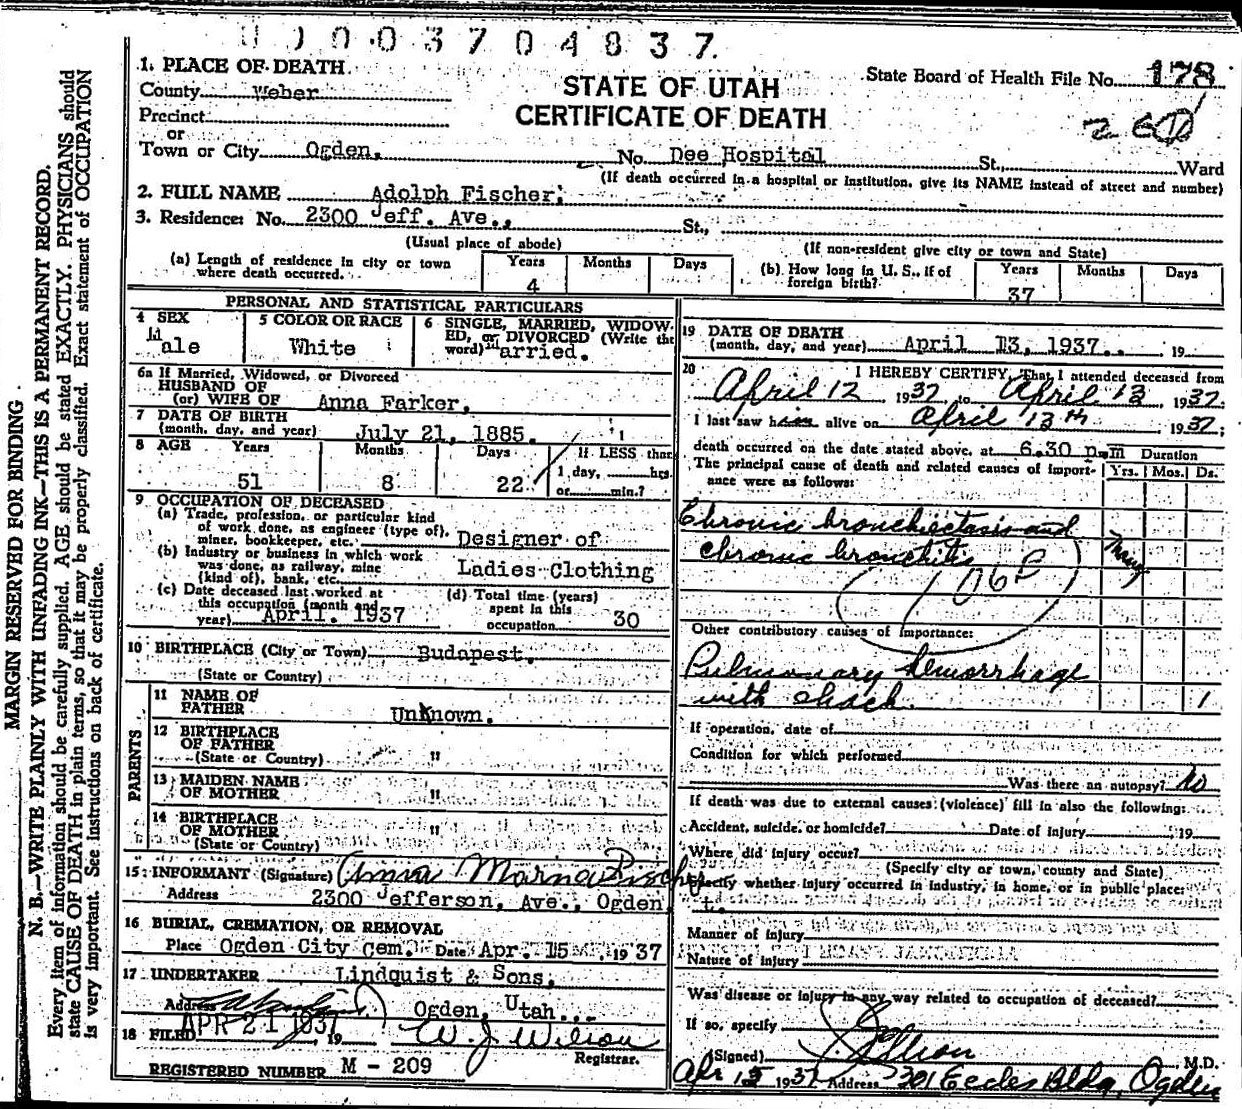 0003704837.
1. PLACE OF DEATH
State Board of Health File No. 178
County Weber
STATE OF UTAH
CERTIFICATE OF DEATH
Precinct
or
Town or City Ogden, No. Dee Hospital St., Ward
(If death occurred in a hospital or institution, give its NAME instead of street and number)
2. FULL NAME Adolph Fischer.
3. Residence: No. 2300 Jeff. Ave., St.,
(Usual place of abode) (If non-resident give city or town and State)
(a) Length of residence in city or town where death occurred. Years 4 Months Days
(b) How long in U. S., if of foreign birth? Years 37 Months Days
PERSONAL AND STATISTICAL PARTICULARS
4 SEX Male
5 COLOR OR RACE White
6 SINGLE, MARRIED, WIDOWED, or DIVORCED (Write the word) Married.
6a If Married, Widowed, or Divorced
HUSBAND OF
(or) WIFE OF Anna Farker,
7 DATE OF BIRTH
(month, day, and year) July 21, 1885.
8 AGE Years 51 Months 8 Days 22 If LESS than 1 day, hrs. or min.?
9 OCCUPATION OF DECEASED
(a) Trade, profession, or particular kind
of work done, as engineer (type of),
miner, bookkeeper, etc. Designer of
(b) Industry or business in which work
was done, as railway, mine
(kind of), bank, etc. Ladies Clothing
(c) Date deceased last worked at
this occupation (month and
year) April. 1937
(d) Total time (years)
spent in this
occupation 30
10 BIRTHPLACE (City or Town) Budapest.
(State or Country)
PARENTS
11 NAME OF
FATHER Unknown.
12 BIRTHPLACE
OF FATHER
(State or Country) "
13 MAIDEN NAME
OF MOTHER "
14 BIRTHPLACE
OF MOTHER "
(State or Country)
15 INFORMANT (Signature) Anna Fischer
Address 2300 Jefferson, Ave., Ogden
16 BURIAL, CREMATION, OR REMOVAL
Place Ogden City Cem. Date Apr. 15 1937
17 UNDERTAKER Lindquist & Sons,
Address Ogden, Utah
18 FILED APR 21 1937, 19 W. J. Wilson
Registrar.
REGISTERED NUMBER M - 209
19 DATE OF DEATH
(month, day, and year) April 13, 1937. 19
20 I HEREBY CERTIFY, That I attended deceased from
April 12 1937, to April 13, 1937.
I last saw him alive on April 13th 1937;
death occurred on the date stated above, at 6.30 p.m Duration
The principal cause of death and related causes of importance were as follows: Yrs. Mos. Ds.
Chronic bronchiectasis and
chronic bronchitis many
106
Other contributory causes of importance:
Pulmonary hemorrhage
with shock. 1
If operation, date of
Condition for which performed
Was there an autopsy? No
If death was due to external causes (violence) fill in also the following:
Accident, suicide, or homicide? Date of injury 19
Where did injury occur?
(Specify city or town, county and State)
Specify whether injury occurred in industry, in home, or in public place:
Manner of injury
Nature of injury
Was disease or injury in any way related to occupation of deceased?
If so, specify
(Signed) M.D.
Apr 15 1937 Address 301 Eccles Bldg, Ogden
MARGIN RESERVED FOR BINDING
N. B.—WRITE PLAINLY WITH UNFADING INK—THIS IS A PERMANENT RECORD.
Every item of information should be carefully supplied. AGE should be stated EXACTLY. PHYSICIANS should
state CAUSE OF DEATH in plain terms, so that it may be properly classified. Exact statement of OCCUPATION
is very important. See instructions on back of certificate.